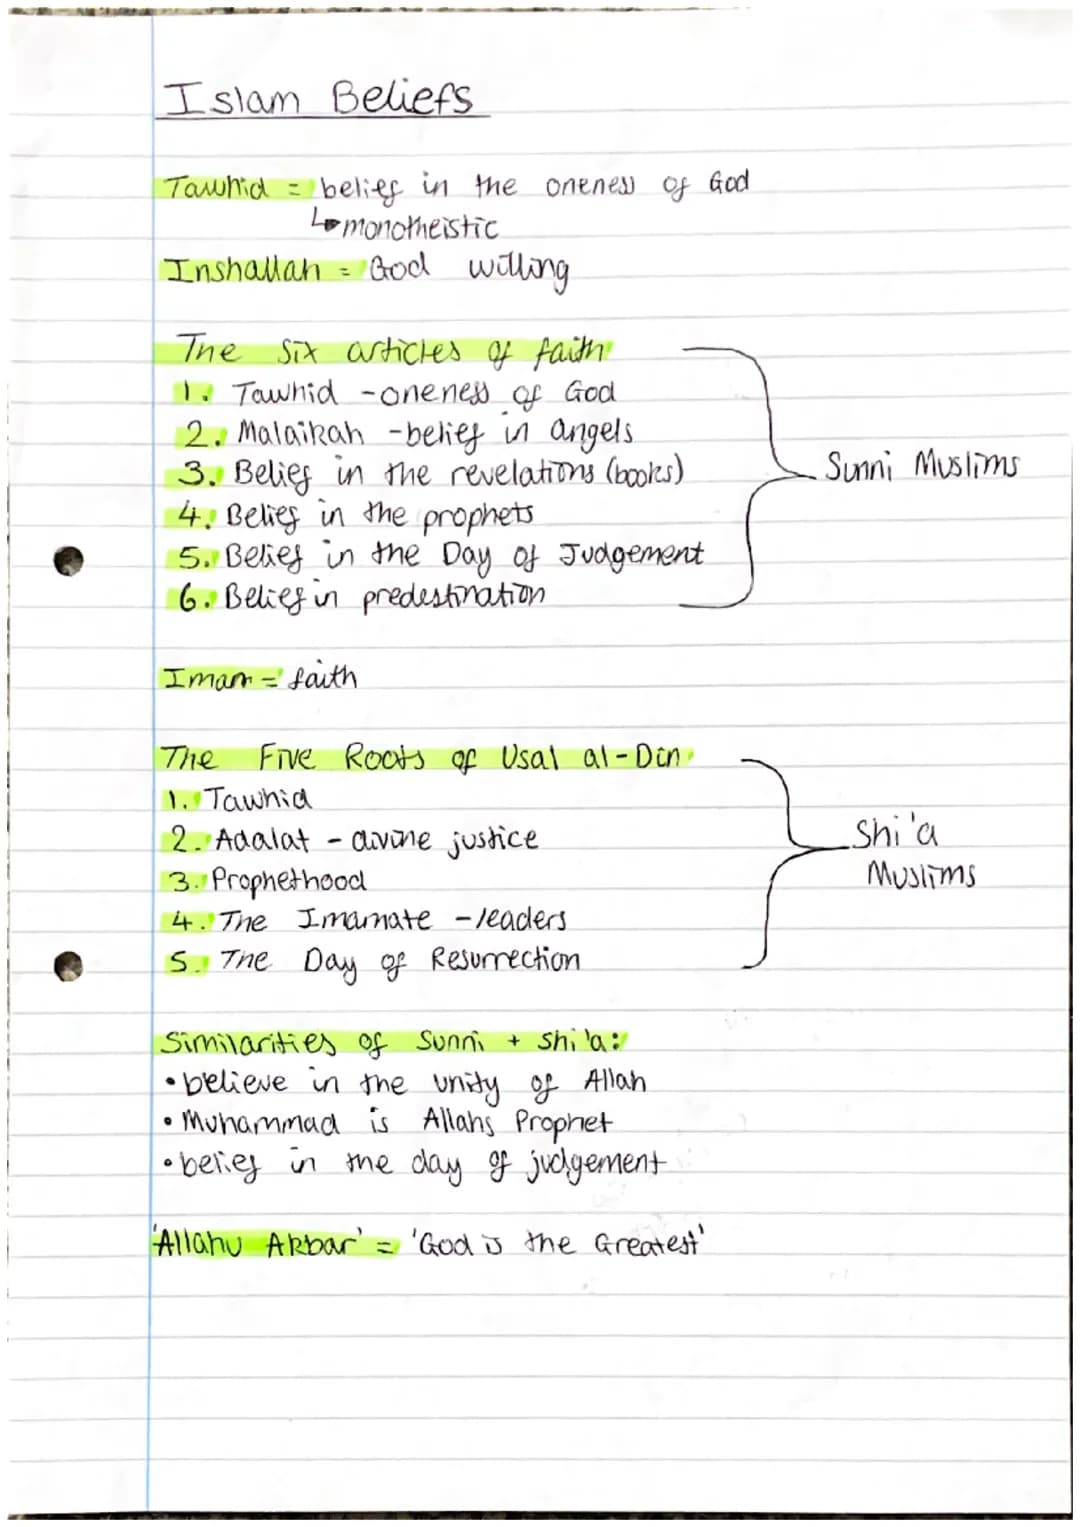 Islam Beliefs
Tawhid = belief in the oneness of God
↳ monotheistic
Inshallah = God willing
The six articles of faith
1. Tawhid - oneness of God
2. Malaikah - belief in angels
3. Belief in the revelations (books)
4. Belief in the prophets
5. Belief in the Day of Judgement
6. Belief in predestination
Sunni Muslims
Iman = faith
The Five Roots of Usal al-Din
1. Tawhid
2. Adalat - divine justice
3. Prophethood
4. The Imamate - leaders
5. The Day of Resurrection
Shi'a
Muslims
Similarities of Sunni + Shi'a:
• believe in the unity of Allah
• Muhammad is Allahs Prophet
• belief in the day of judgement
'Allahu Akbar' = 'God is the Greatest'